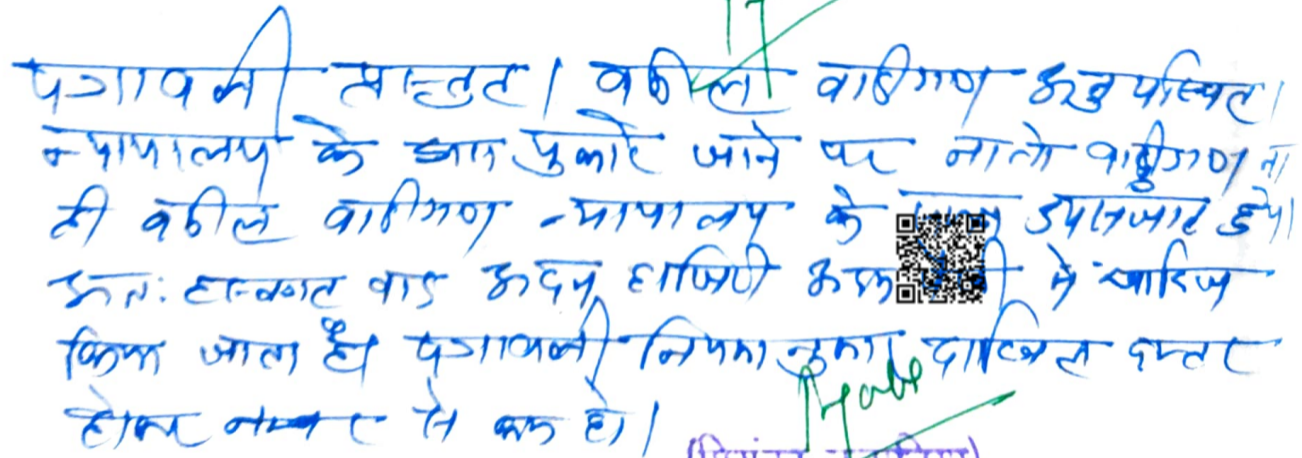 17
पत्रावली प्रस्तुत। वकील वादीगण अनुपस्थित।
न्यायालय के पुकारे जाने पर ना तो वादीगण ना
ही वकील वादीगण न्यायालय के हुये।
अतः हस्तगत वाद अदम हाजिरी अदम में खारिज
किया जाता है। पत्रावली नियमानुसार दाखिल दफ्तर
होकर नम्बर से कम हो।